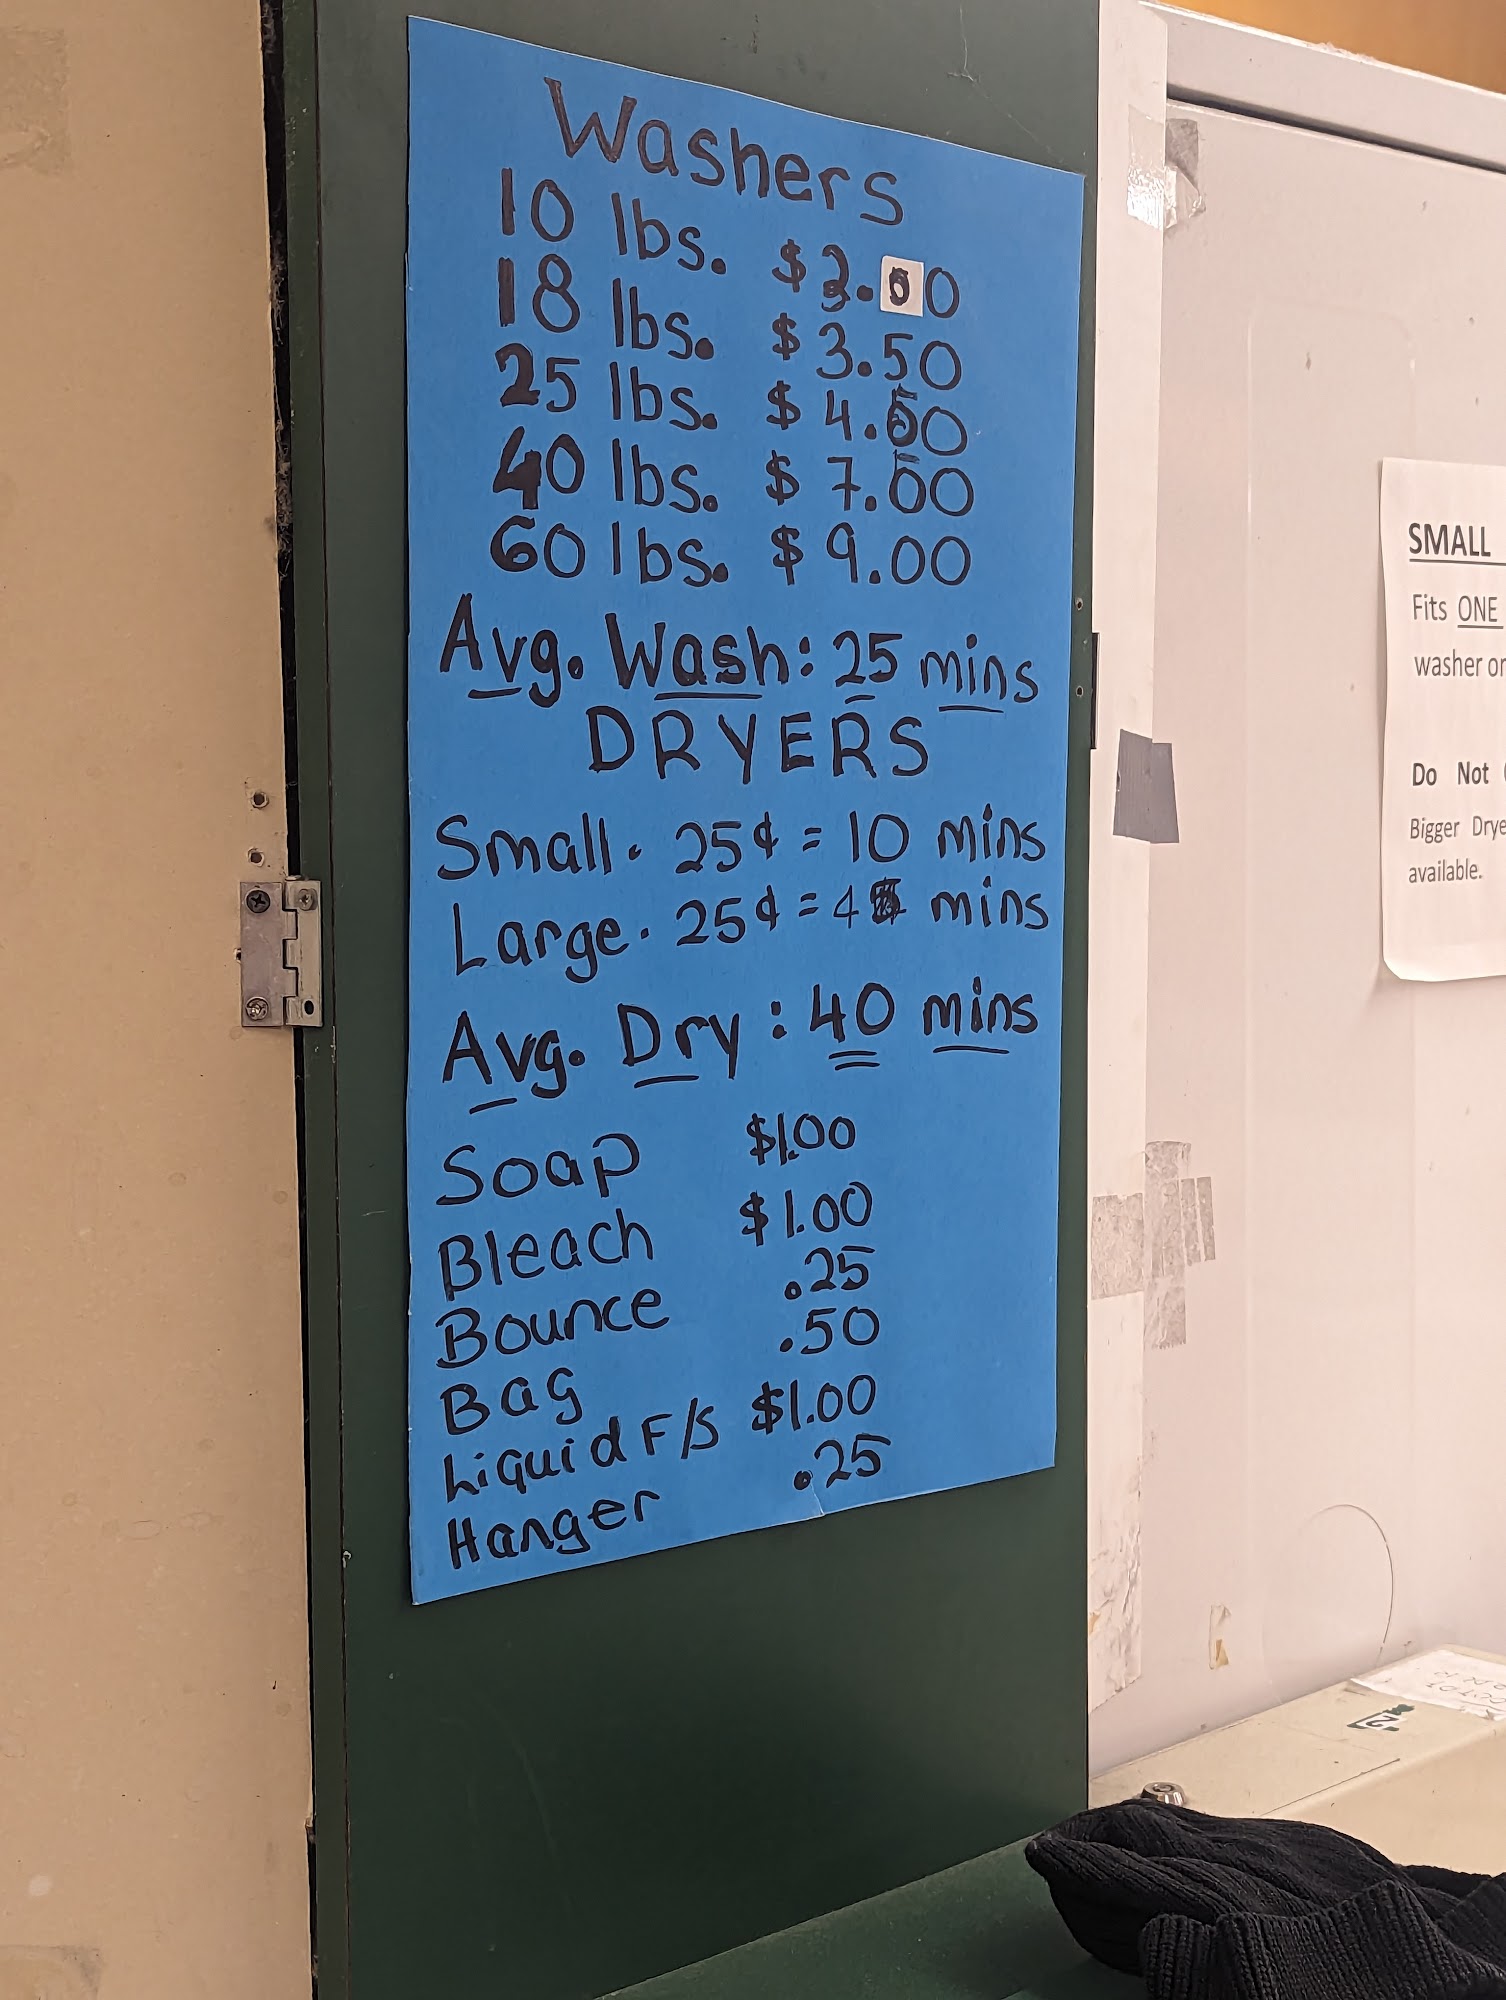 Washers
10 lbs. $3.00
18 lbs. $3.50
25 lbs. $4.50
40 lbs. $7.00
60 lbs. $9.00
Avg. Wash: 25 mins
DRYERS
Small. 25¢ = 10 mins
Large. 25¢ = 4 mins
Avg. Dry: 40 mins
Soap $1.00
Bleach $1.00
Bounce .25
Bag .50
Liquid F/S $1.00
Hanger .25
SMALL
Fits ONE
washer or
Do Not
Bigger Drye
available.